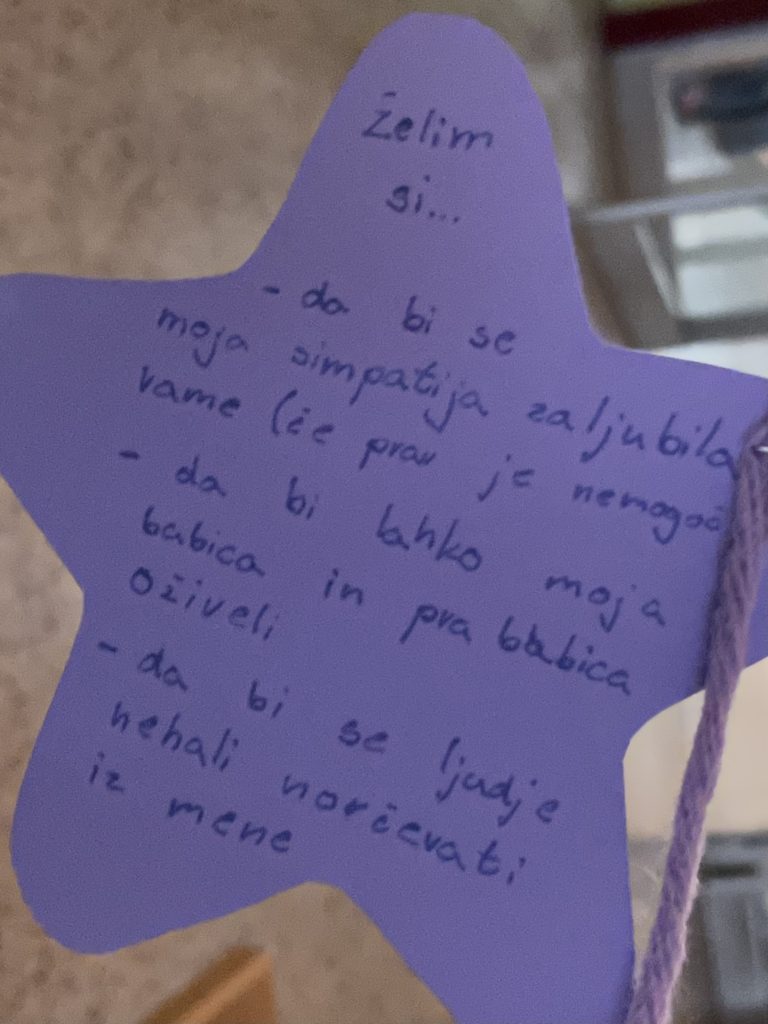 Želim
si...
- da bi se
moja simpatija zaljubila
vame (če prav je nemogoč
- da bi lahko moja
babica in pra babica
oživeli
- da bi se ljudje
nehali norčevati
iz mene